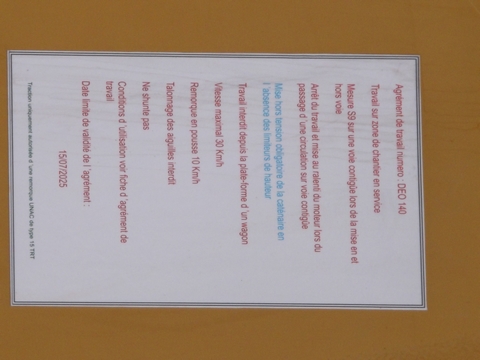 Agrément de travail numero : DEO 140
Travail sur zone de chantier en service
Mesure S9 sur une voie contigüe lors de la mise en et
hors voie
Arrêt du travail et mise au ralenti du moteur lors du
passage d'une circulation sur voie contigüe
Mise hors tension obligatoire de la caténaire en
l'absence des limiteurs de hauteur
Travail interdit depuis la plate-forme d'un wagon
Vitesse maximal 30 Km/h
Remorque en pousse 10 Km/h
Talonnage des aiguilles interdit
Ne shunte pas
Conditions d'utilisation voir fiche d'agrément de
travail
Date limite de validité de l'agrément :
15/07/2025
Traction uniquement autorisée d'une remorque UNAC de type 15 TRT